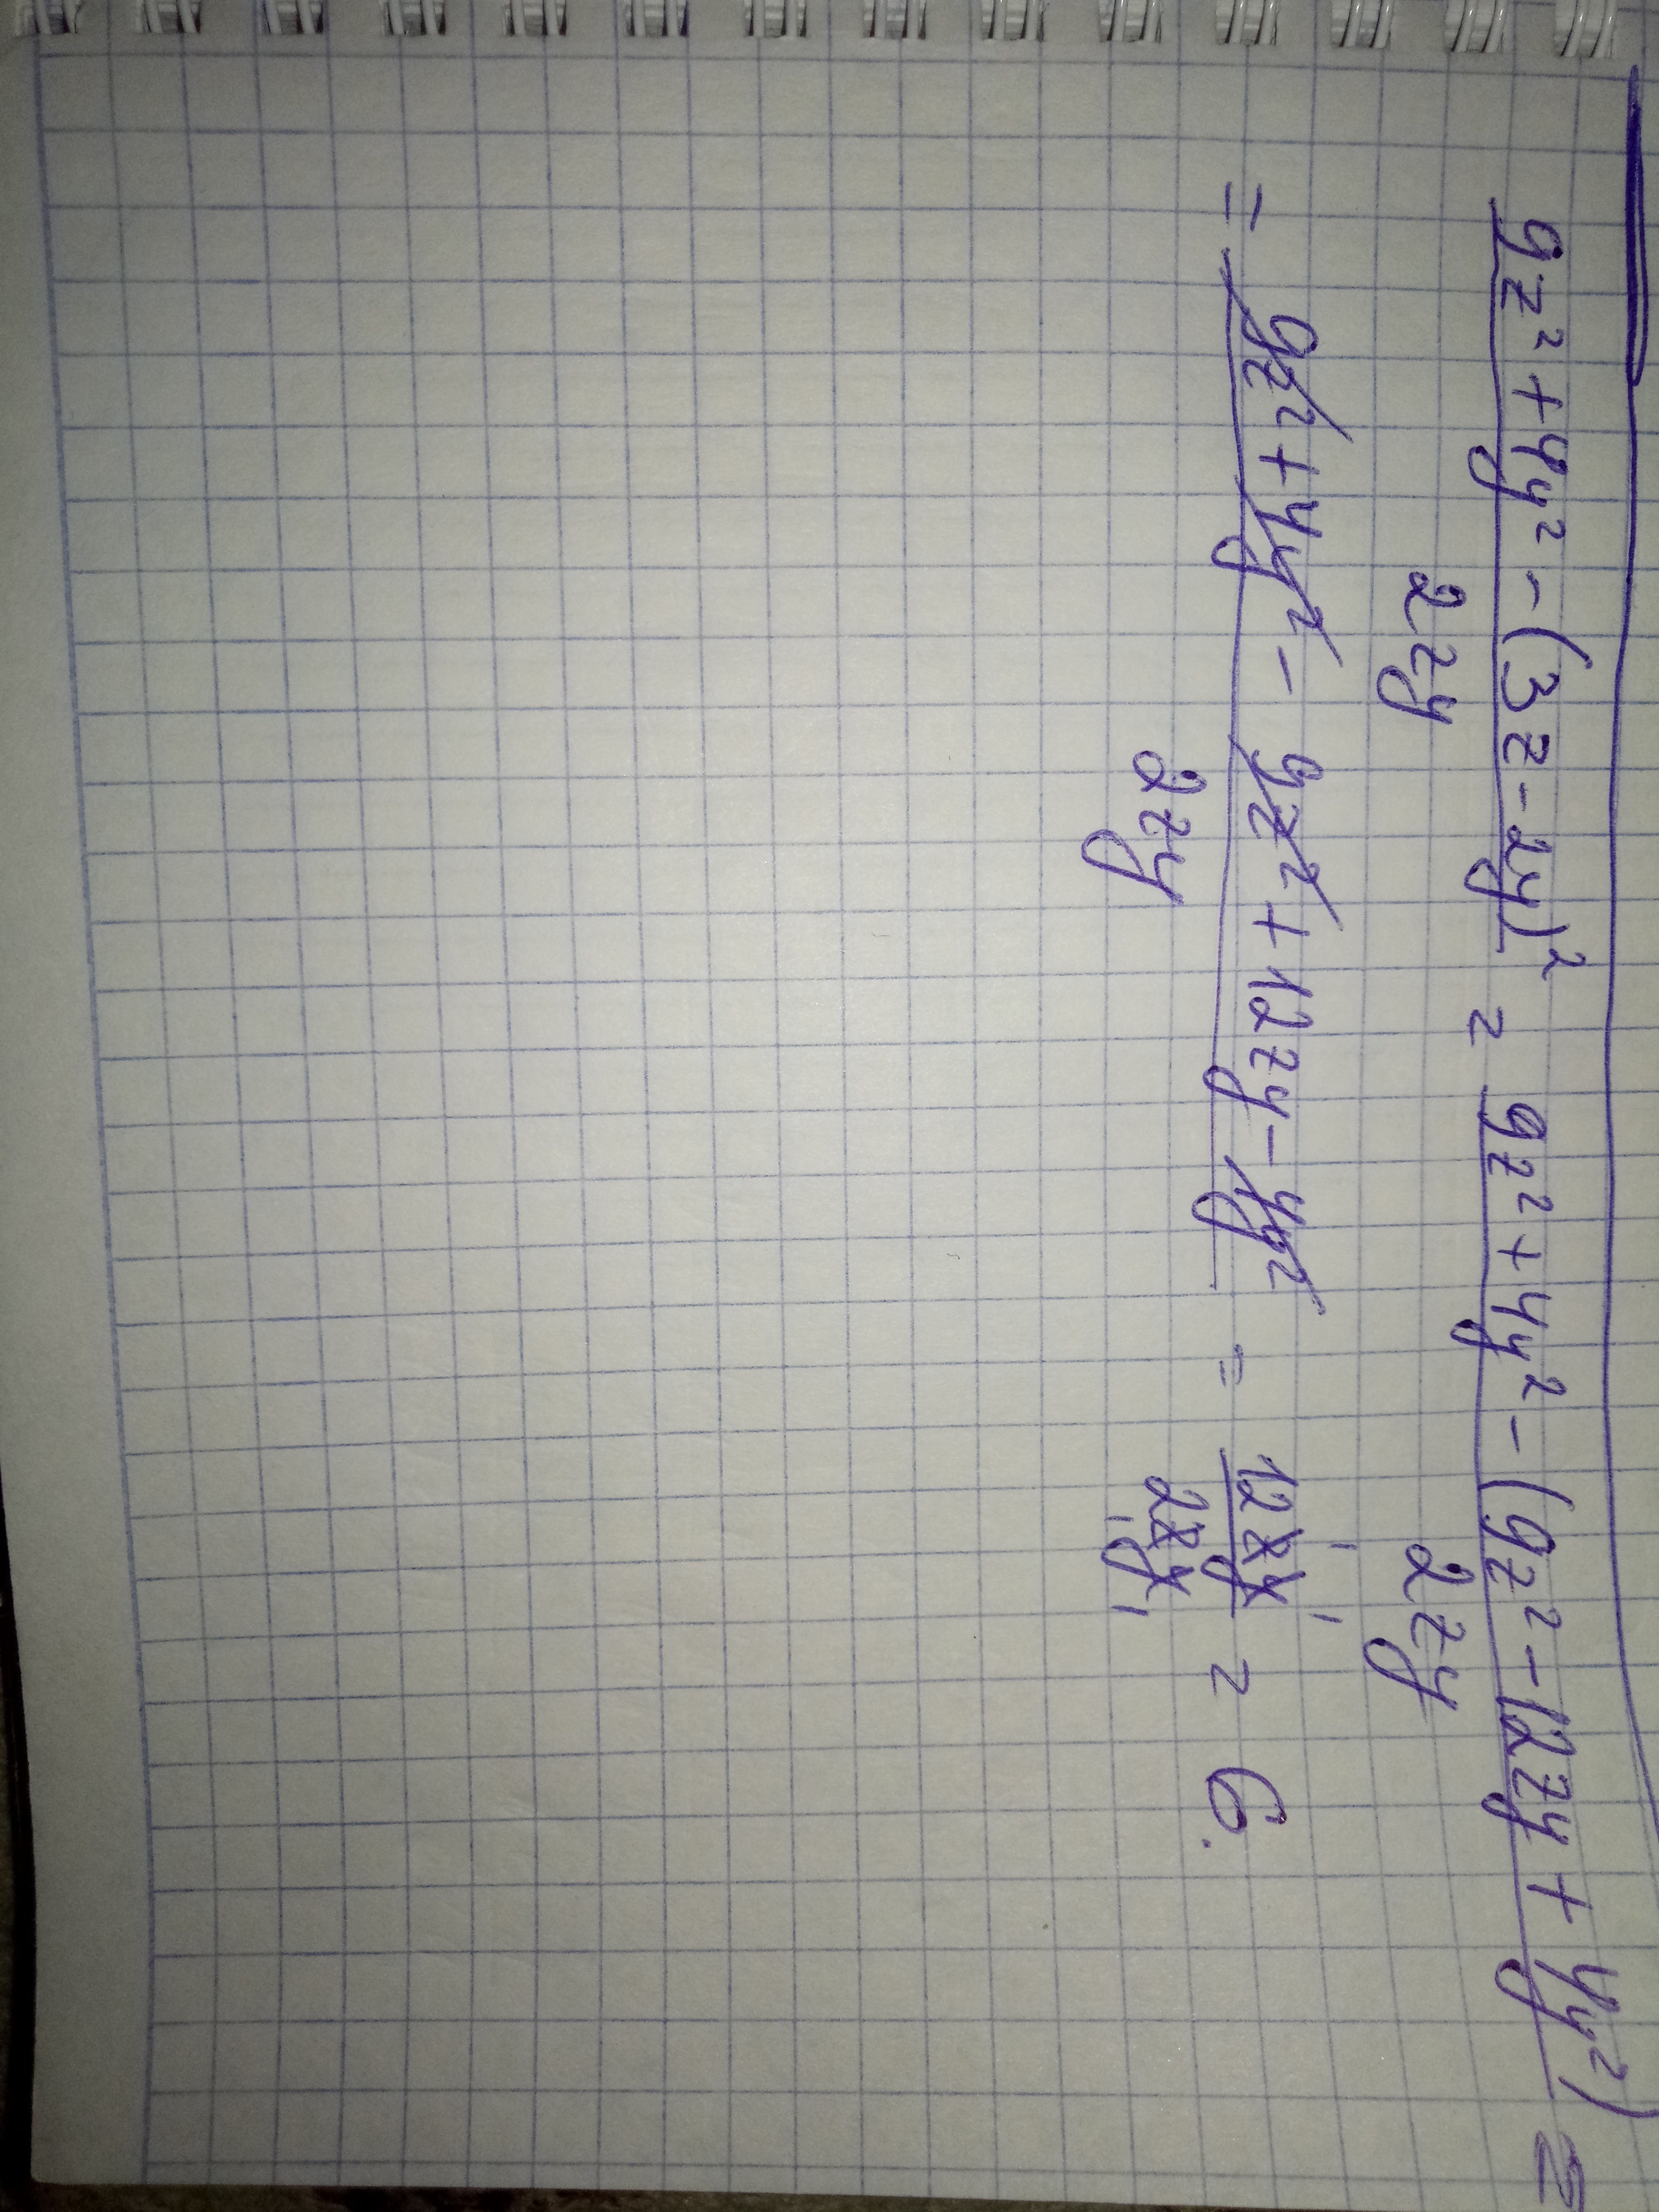 9z² + 4y² - (3z - 2y)² = 9z² + 4y² - (9z² - 12zy + 4y²) =
2zy 2zy
= 9z² + 4y² - 9z² + 12zy - 4y² = 12zy = 6.
2zy 2zy